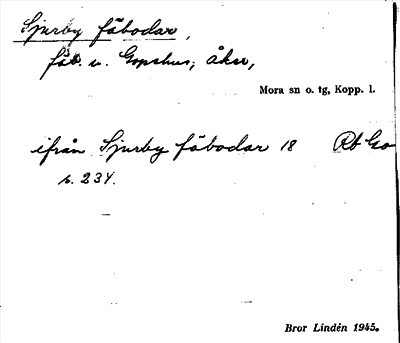 Sjurby fäbodar,
fäb. u. Gopshus; åker,
Mora sn o. tg, Kopp. l.
ifrån Sjurby fäbodar 18 Rb Go
s. 234.
Bror Lindén 1945.